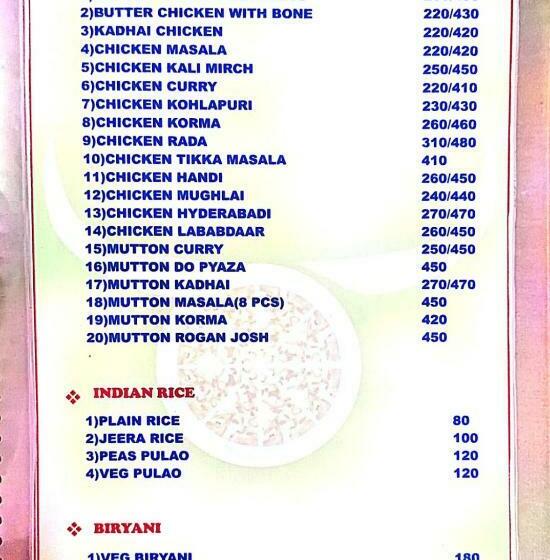 2)BUTTER CHICKEN WITH BONE 220/430
3)KADHAI CHICKEN 220/420
4)CHICKEN MASALA 220/420
5)CHICKEN KALI MIRCH 250/450
6)CHICKEN CURRY 220/410
7)CHICKEN KOHLAPURI 230/430
8)CHICKEN KORMA 260/460
9)CHICKEN RADA 310/480
10)CHICKEN TIKKA MASALA 410
11)CHICKEN HANDI 260/450
12)CHICKEN MUGHLAI 240/440
13)CHICKEN HYDERABADI 270/470
14)CHICKEN LABABDAAR 260/450
15)MUTTON CURRY 250/450
16)MUTTON DO PYAZA 450
17)MUTTON KADHAI 270/470
18)MUTTON MASALA(8 PCS) 450
19)MUTTON KORMA 420
20)MUTTON ROGAN JOSH 450
INDIAN RICE
1)PLAIN RICE 80
2)JEERA RICE 100
3)PEAS PULAO 120
4)VEG PULAO 120
BIRYANI
1)VEG BIRYANI 180